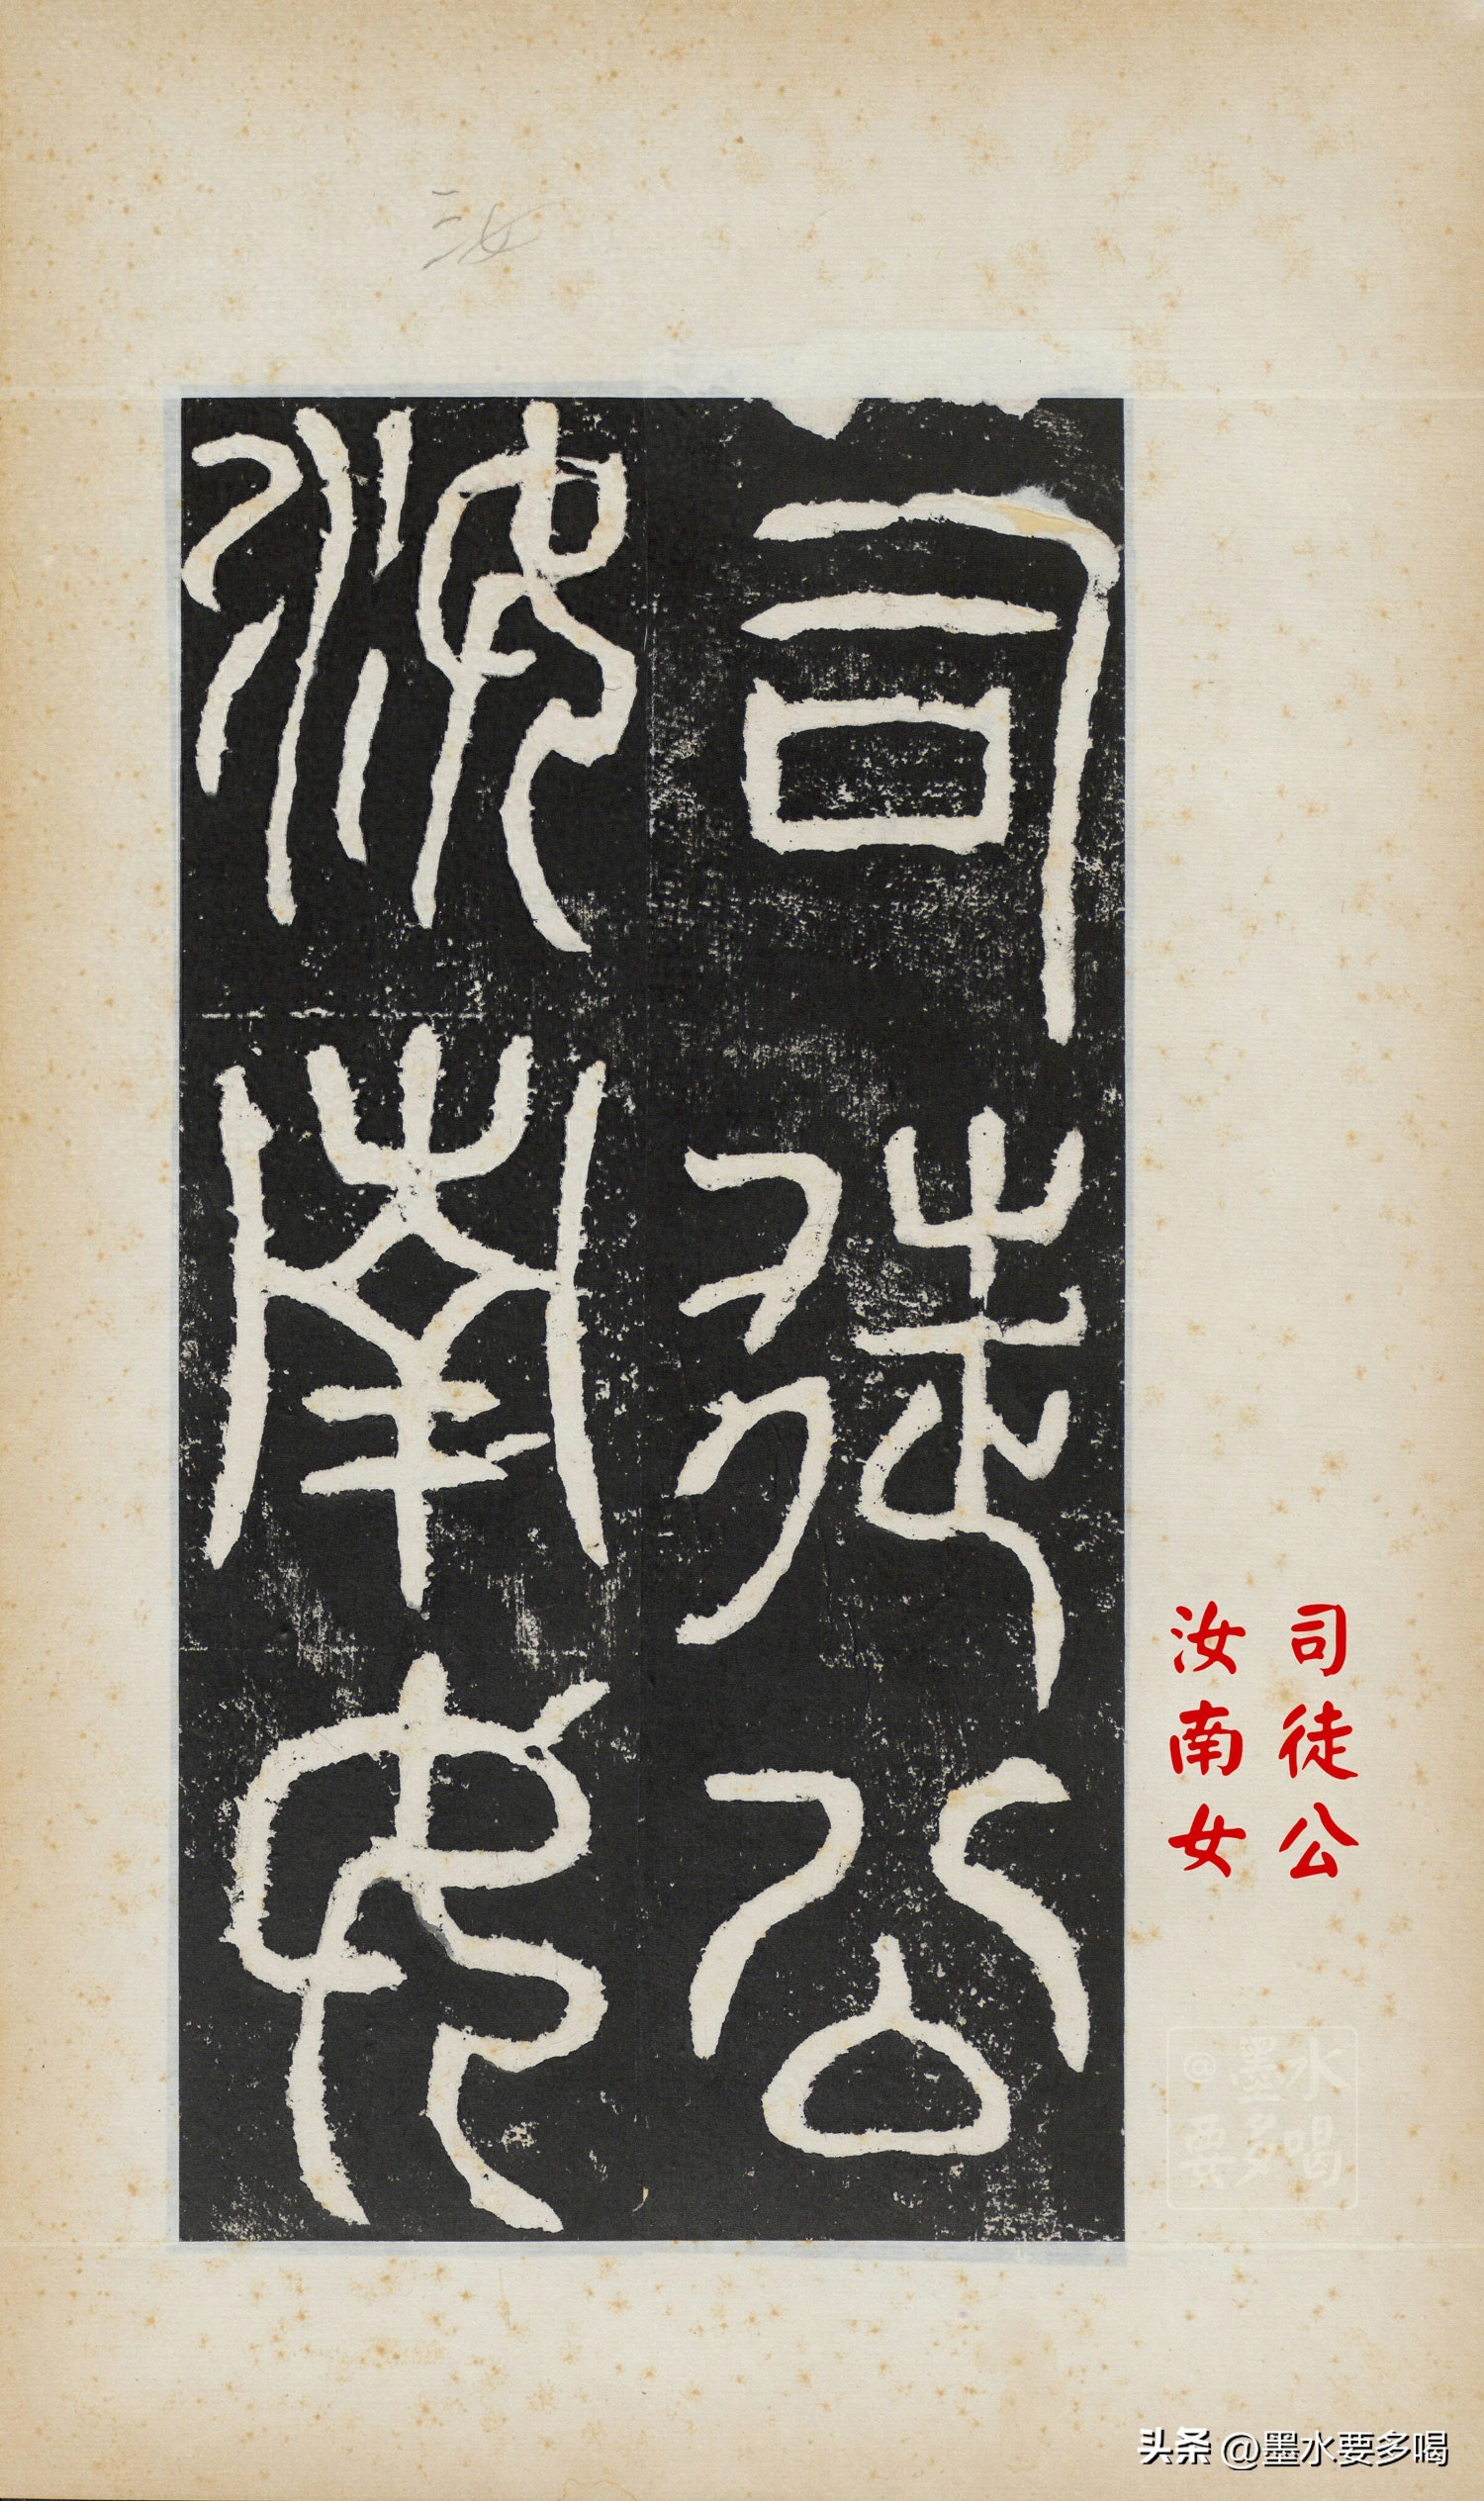 司徒公
汝南女
汝
司徒公
汝南女
@墨水
要多喝
头条 @墨水要多喝